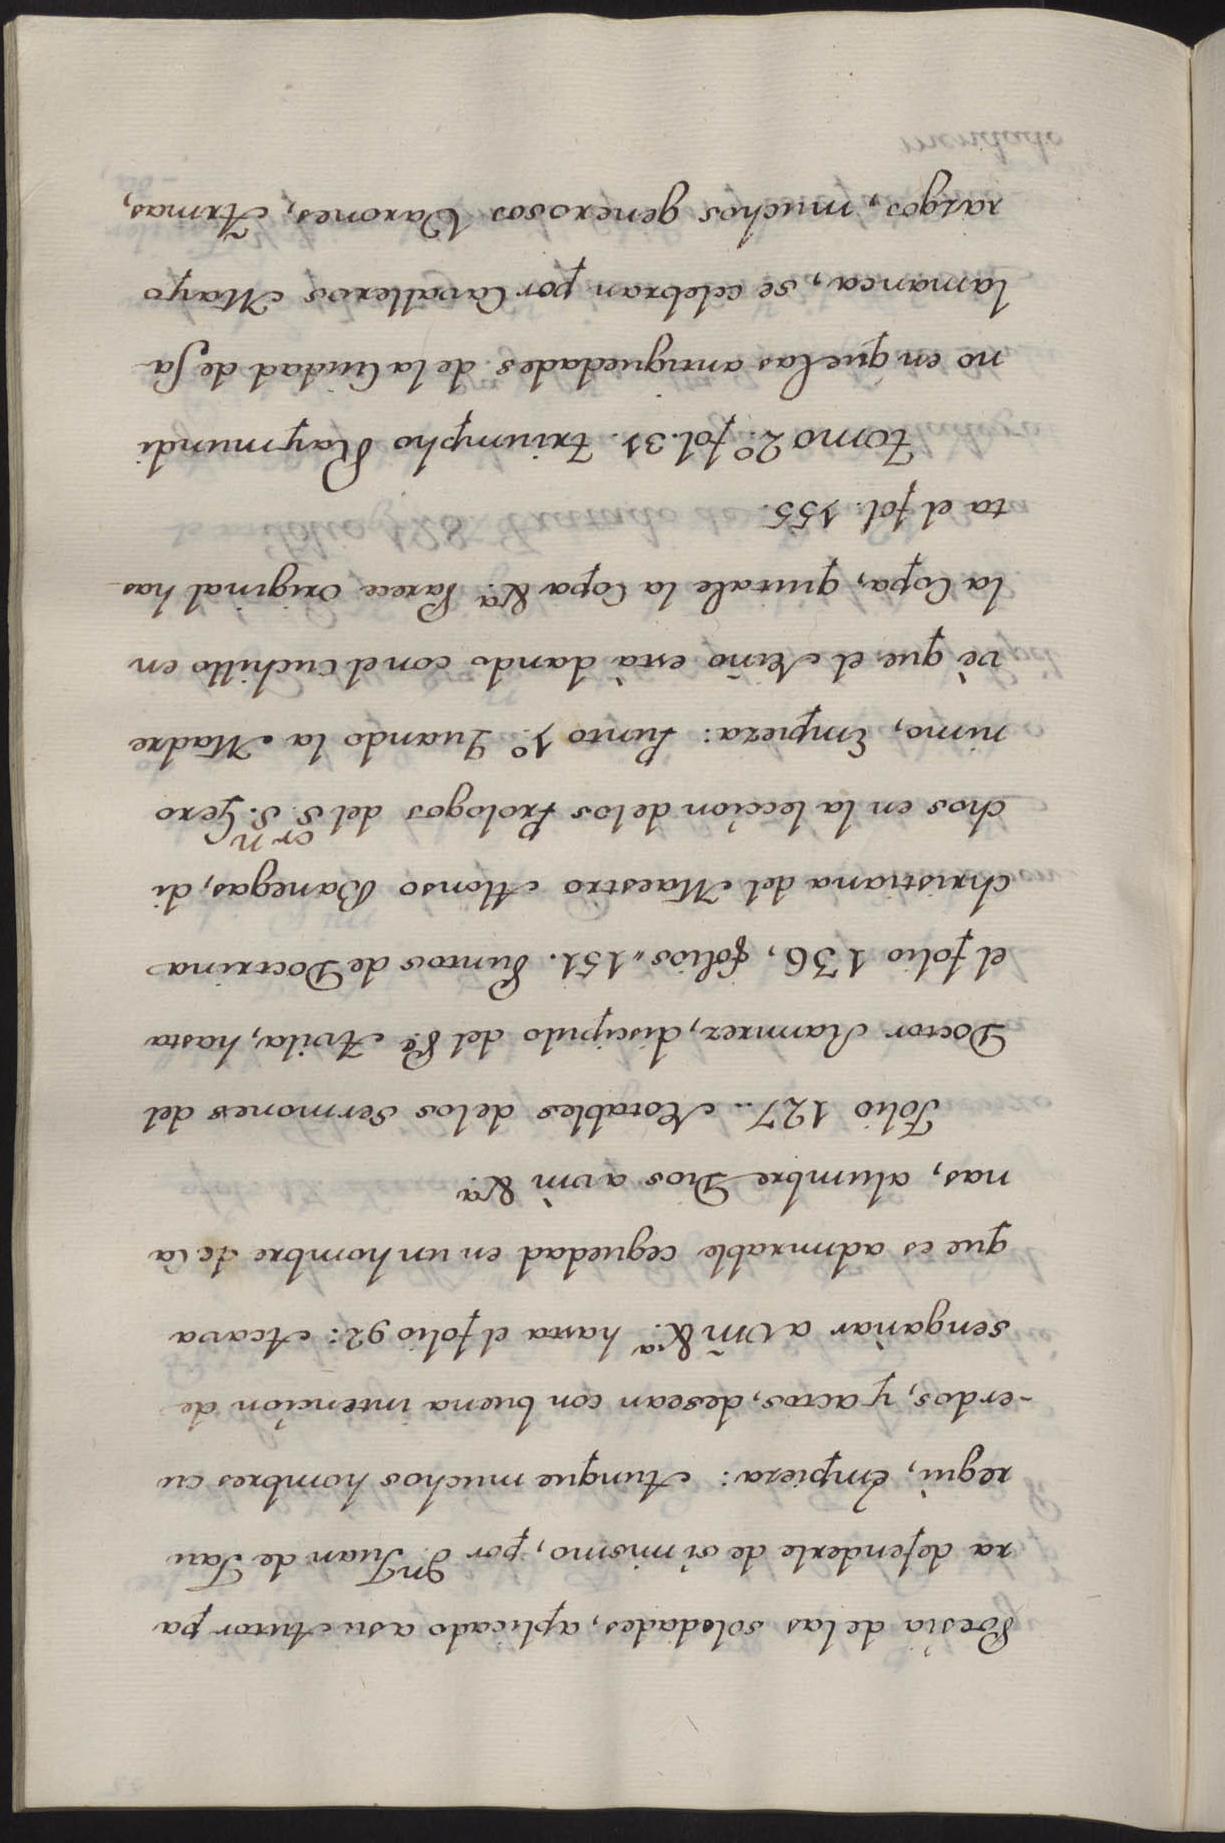 Poesia de las soledades, aplicado a su Autor pa
ra defenderle de si mismo, por Dn. Juan de Jau
regui, Empieza: Aunque muchos hombres cu
-erdos, y actos, desean con buena intencion de
sengañar a Vm̃ &.a hasta el folio 92: Acava
que es admirable ceguedad en un hombre de ca
nas, alumbre Dios a vm̃ &a.
Folio 127.. Notables de los Sermones del
Doctor Ramirez, discipulo del Pe. Avila, hasta
el folio 136, folios " 151. Puntos de Doctrina
christiana del Maestro Alonso Banegas, di
chos en la leccion de los Prologos del Sor. Sn. Gero
nimo, Empieza: Punto 1º. Quando la Madre
vè que el Niño està dando con el cuchillo en
la Copa, quitale la Copa &.a Parece original has
ta el fol. 155.
Tomo 2º. fol. 31. triumpho Raymundi
no en que las antiguedades de la Ciudad de Sa
lamanca, se celebran por Cavalleros Mayo
razgos, muchos generosos Varones, Armas,